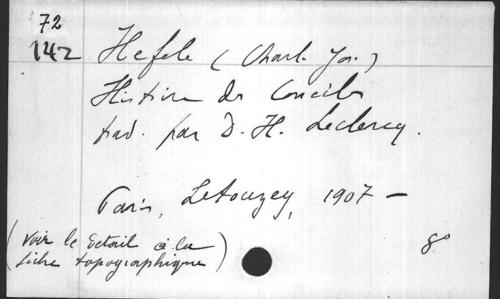 72
142 Hefele (Charl. Jos.)
Histoire des Conciles
trad. par D. H. Leclercq.
Paris, Letouzey, 1907 -
8°
(voir le détail à la
fiche topographique)